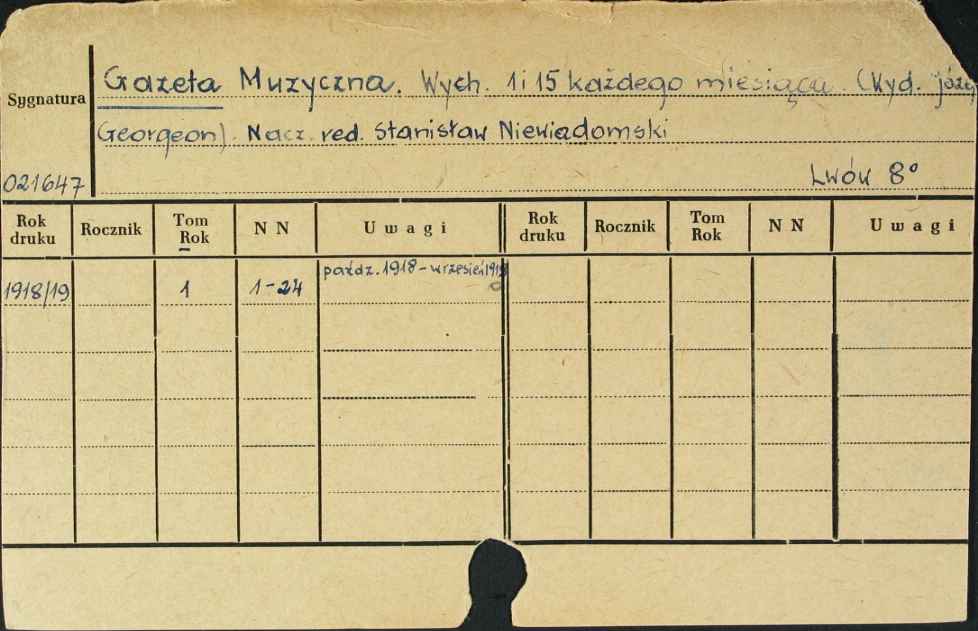 Gazeta Muzyczna. Wych. 1 i 15 każdego miesiąca. (Wyd.
Sygnatura
Georgeon). Nacz. red. Stanisław Niewiadomski
021647
Lwów 8°
Rok druku Rocznik Tom Rok N N Uwagi Rok druku Rocznik Tom Rok N N Uwagi
paźdz. 1918 - wrzesień 1919
1918/19 1 1-24